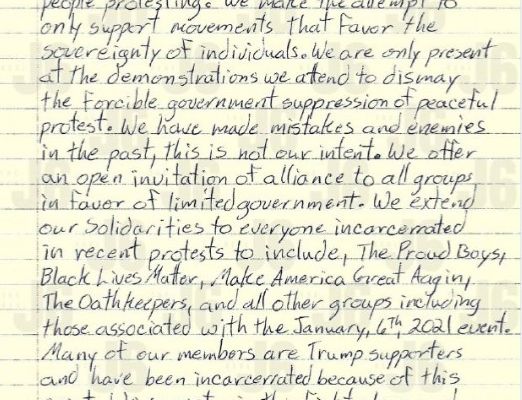 people protesting. We make the attempt to
only support movements that favor the
sovereignty of individuals. We are only present
at the demonstrations we attend to dismay
the forcible government suppression of peaceful
protest. We have made mistakes and enemies
in the past, this is not our intent. We offer
an open invitation of alliance to all groups
in favor of limited government. We extend
our Solidarities to everyone incarcerrated
in recent protests to include, The Proud Boys,
Black Lives Matter, Make America Great Aagin,
The Oathkeepers, and all other groups including
those associated with the January, 6th, 2021 event.
Many of our members are Trump supporters
and have been incarcerrated because of this